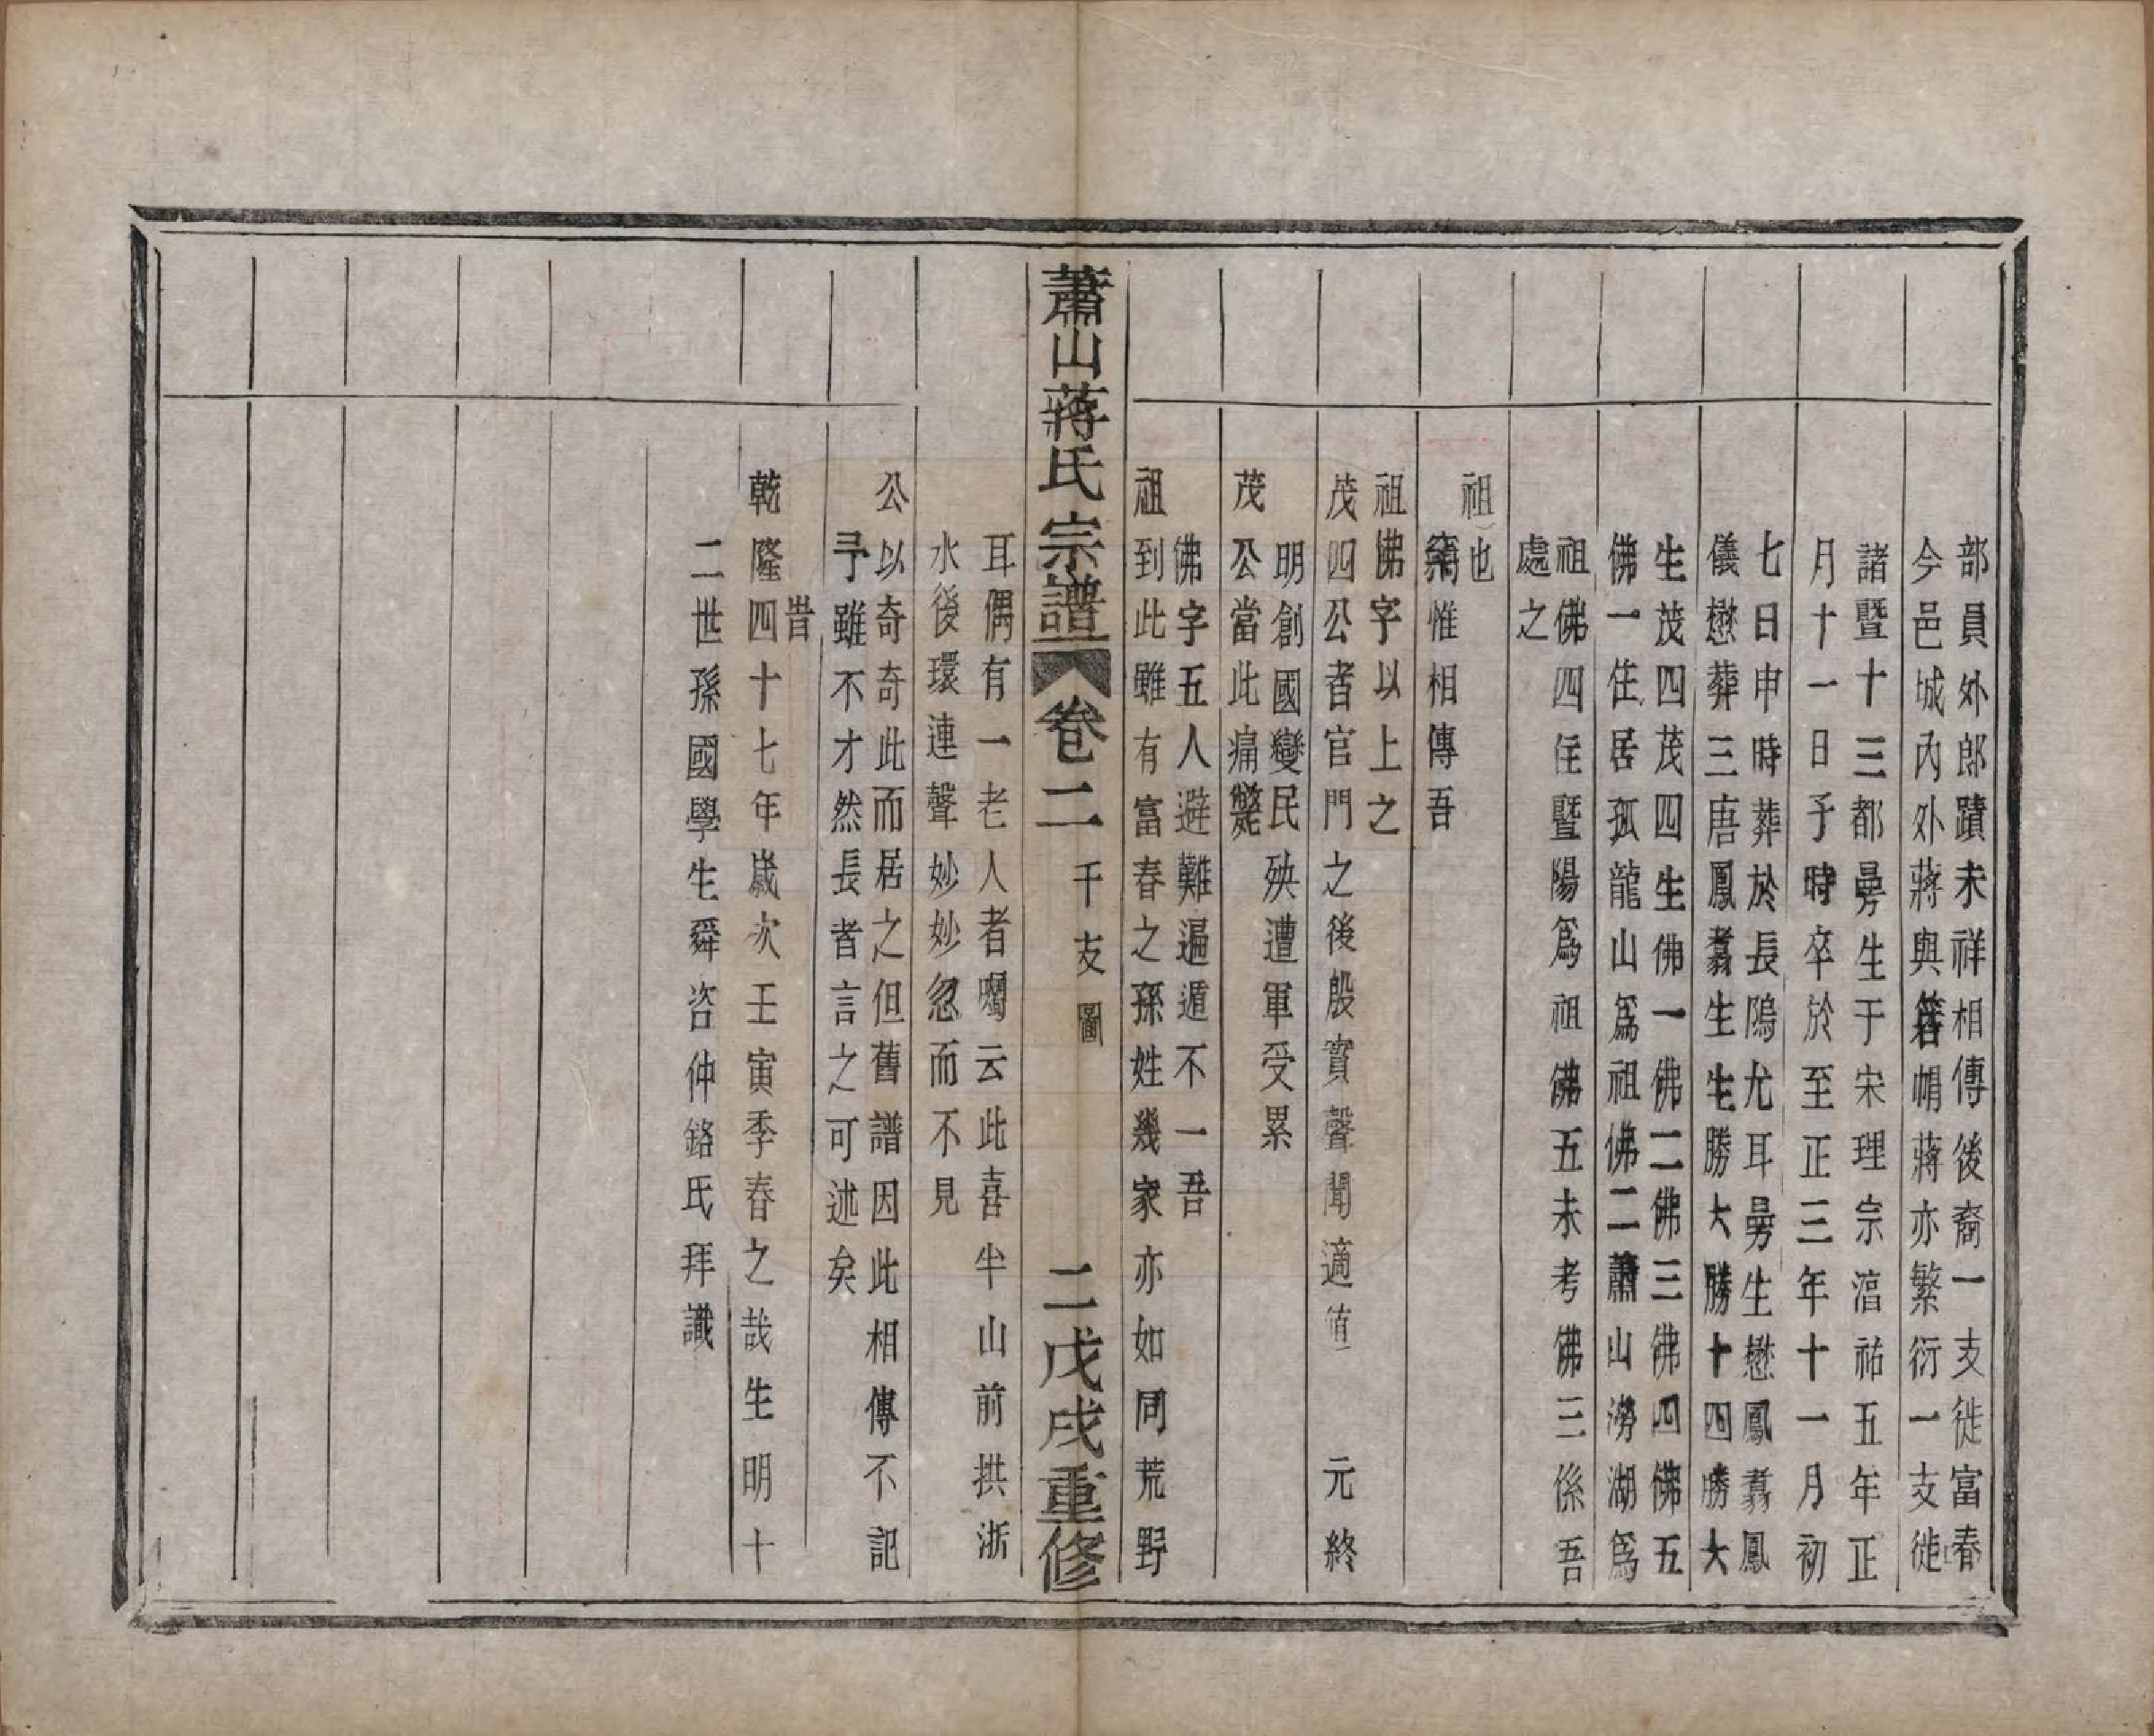 部員外郎蹟未祥相傳後裔一支徙富春
今邑城內外蔣與箬帽蔣亦繁衍一支徙
諸暨十三都昮生于宋理宗湻祐五年正
月十一日子時卒於至正三年十一月初
七日申時葬於長隖尤耳昮生懋鳳翥鳳
儀懋葬三唐鳳翥生生勝大勝十四勝大
生茂四茂四生佛一佛二佛三佛四佛五
佛一住居孤龍山爲祖佛二蕭山澇湖爲
祖佛四住暨陽爲祖佛五未考佛三係吾
處之
祖也
竊惟相傳吾
祖佛字以上之
茂四公者官門之後殷實聲聞適值 元終
明創國變民殃遭軍受累
茂公當此痛斃
佛字五人避難逼遁不一吾
祖到此雖有富春之孫姓幾家亦如同荒野
蕭山蔣氏宗譜 卷二 干支圖 二 戊戌重修
耳偶有一老人者囑云此喜半山前拱浙
水後環連聲妙妙忽而不見
公以奇奇此而居之但舊譜因此相傳不記
予雖不才然長者言之可述矣
旹
乾隆四十七年歲次壬寅季春之哉生明十
二世孫國學生舜咨仲銘氏拜識